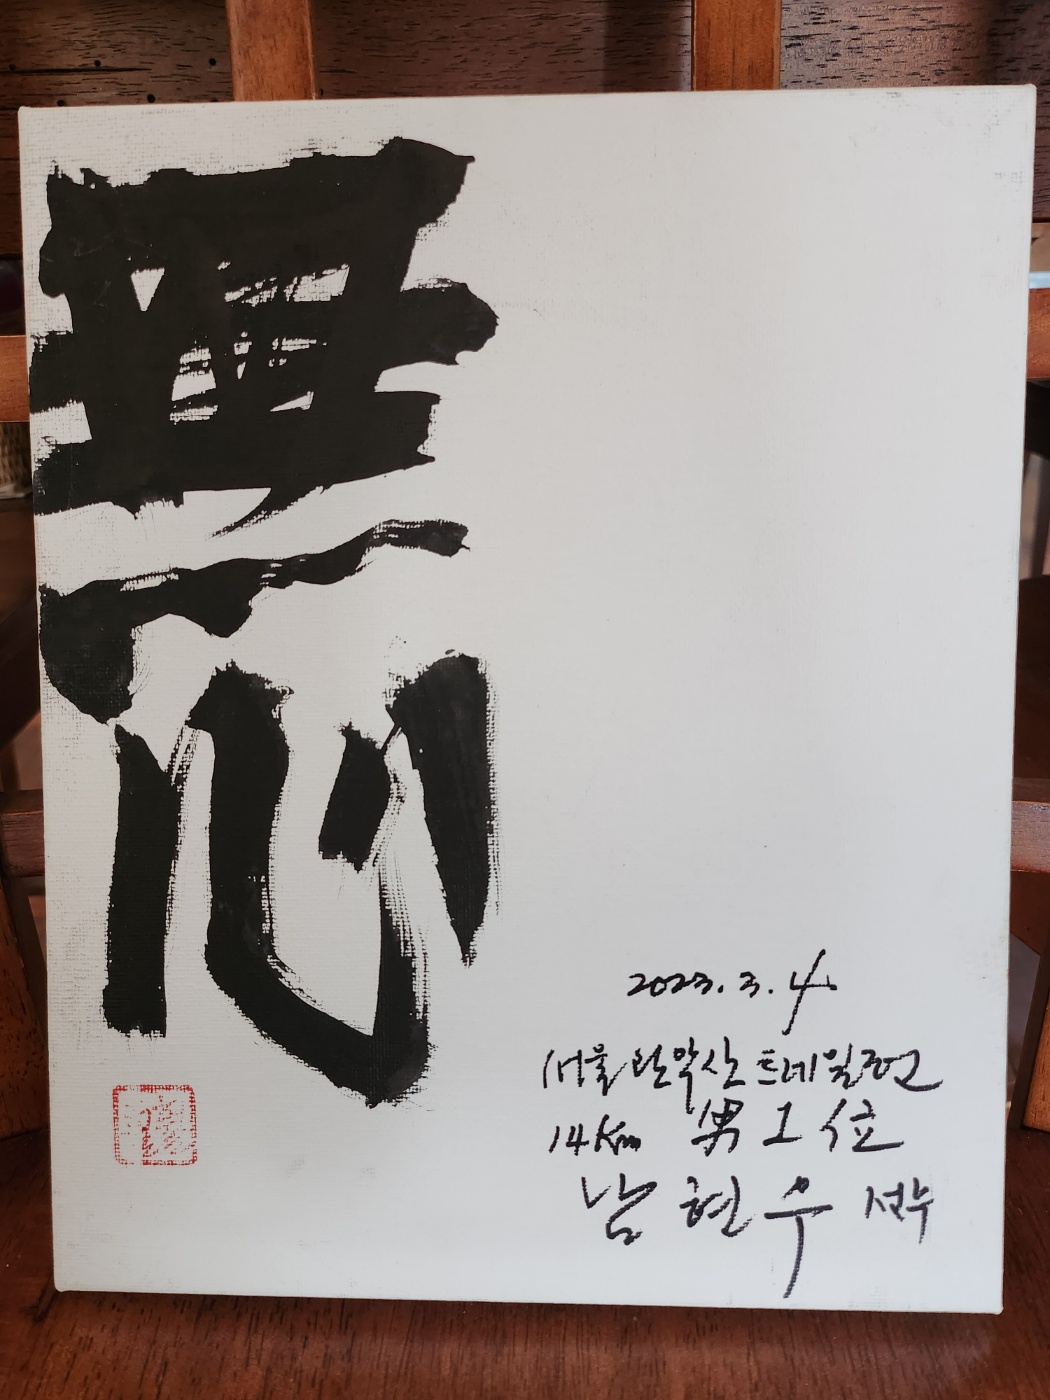 無心
2023.3.4
서울관악산트레일런
14km 男 1 位
남현우 선수